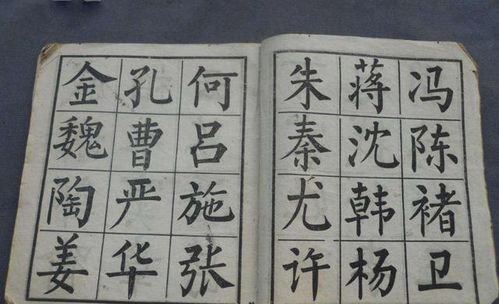 冯陈褚卫
蒋沈韩杨
朱秦尤许
何吕施张
孔曹严华
金魏陶姜